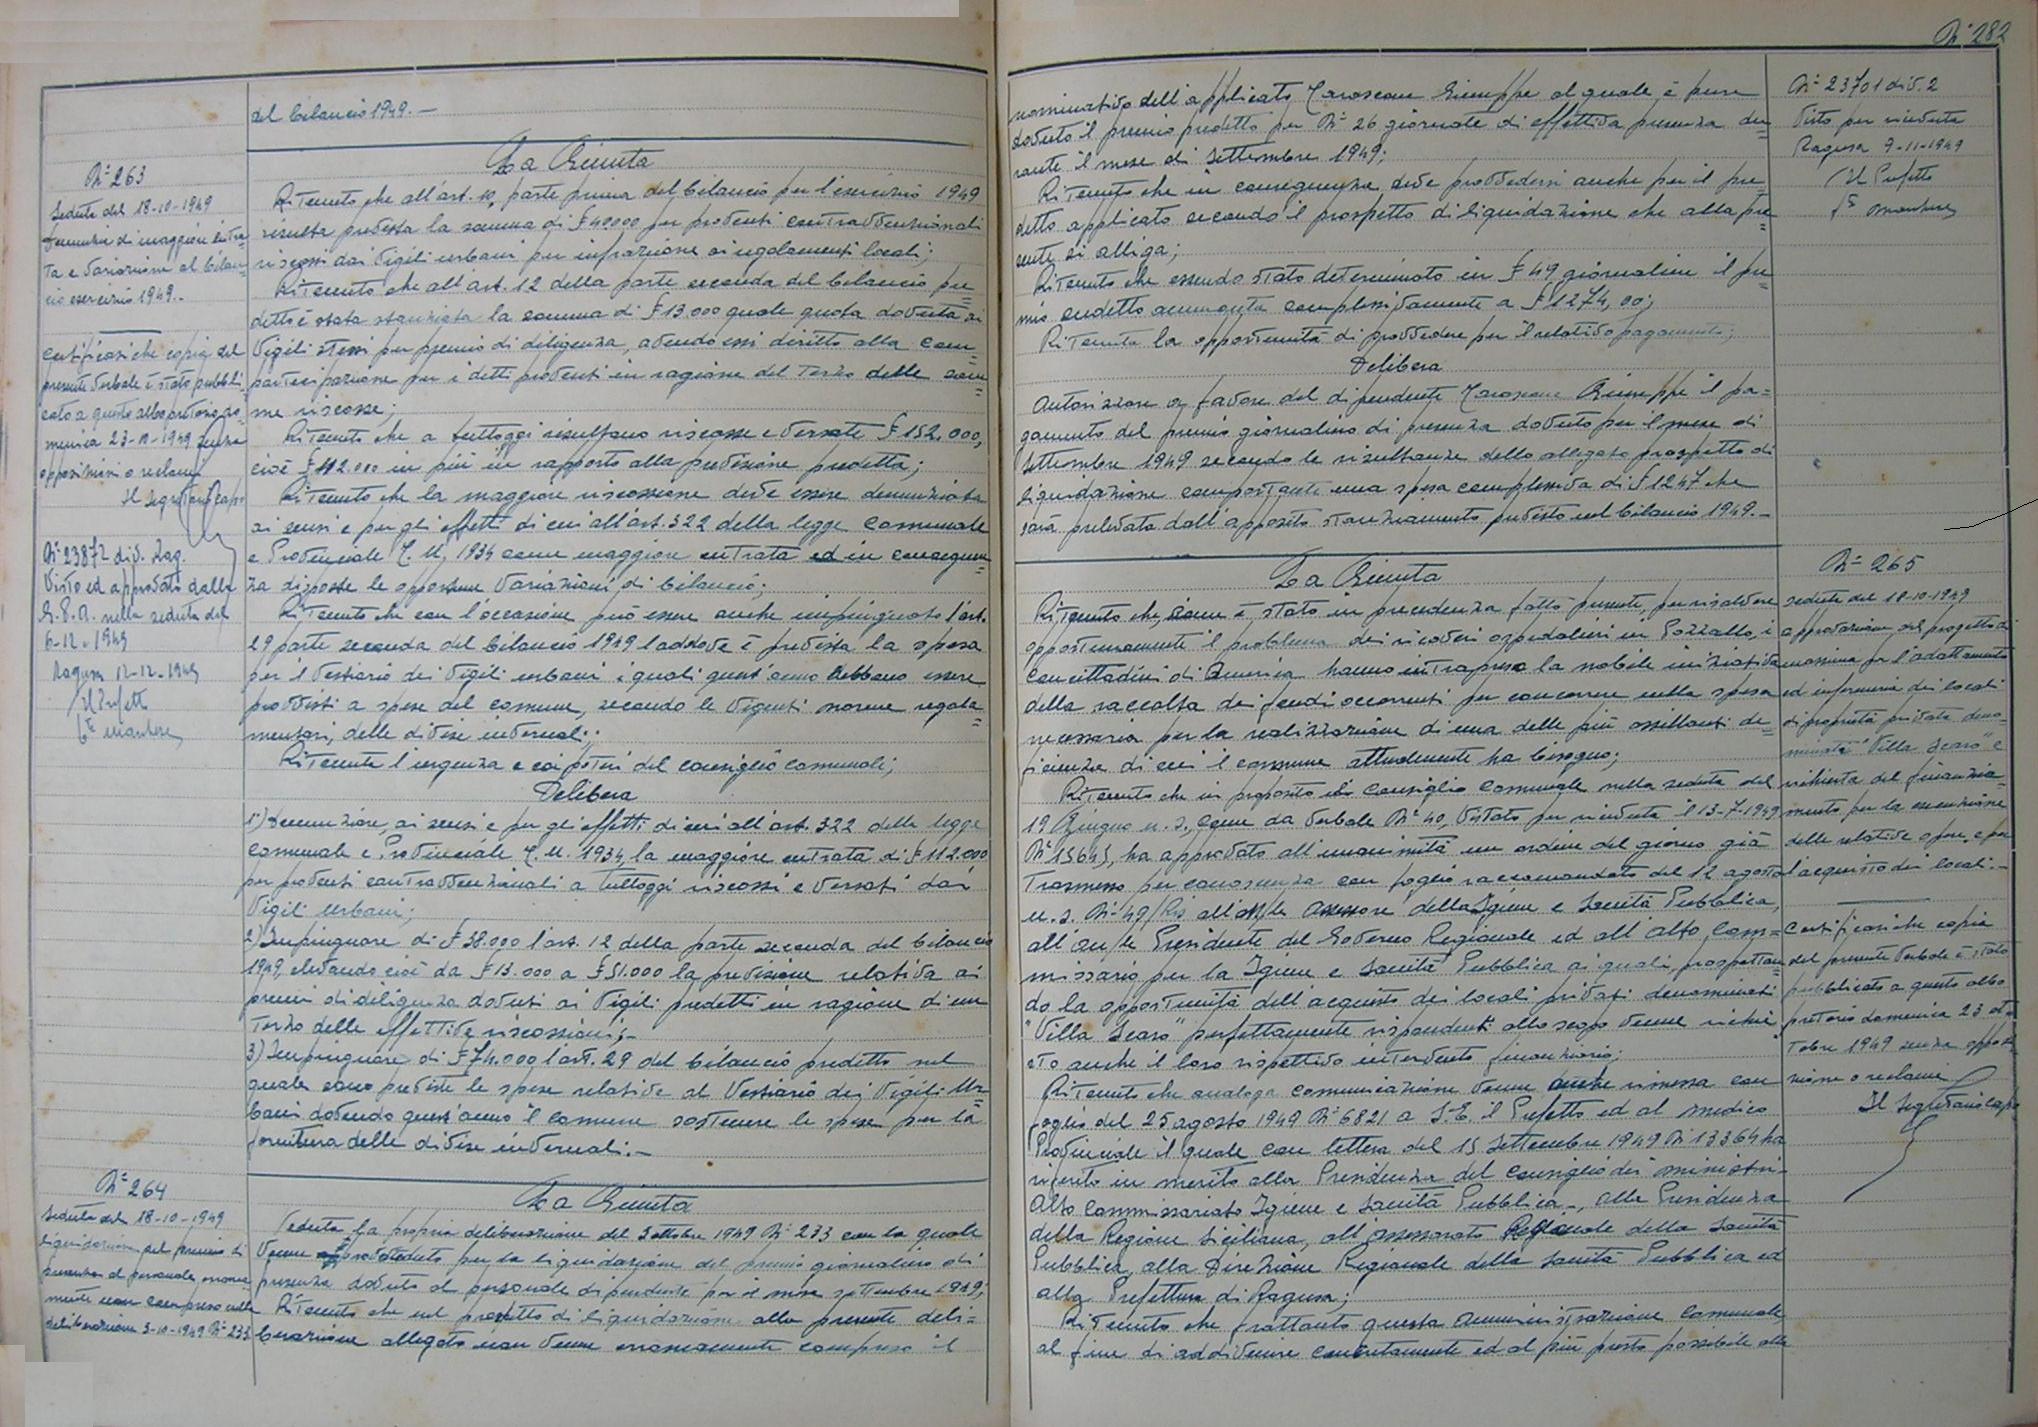 del bilancio 1949.-
N° 263
Seduta del 18-10-1949
Denunzia di maggiore entra=
ta e variazione al bilan=
cio esercizio 1949.-
Certificasi che copia del
presente verbale è stato pubbli=
cato a questo albo pretorio do=
menica 23-10-1949 senza
opposizioni o reclami
Il Segretario Capo
N° 23872 div. Rag.
Visto ed approvato dalla
G.P.A. nella seduta del
6-12-1949
Ragusa 12-12-1949
Il Prefetto
La Giunta
Ritenuto che all'art. 10, parte prima del bilancio per l'esercizio 1949
risulta prevista la somma di £ 40000 per proventi contravvenzionali
riscossi dai Vigili urbani per infrazione ai regolamenti locali;
Ritenuto che all'art. 12 della parte seconda del bilancio pre=
detto è stata stanziata la somma di £ 13.000 quale quota dovuta ai
Vigili stessi per premio di diligenza, avendo essi diritto alla com=
partecipazione per i detti proventi in ragione del terzo delle som=
me riscosse;
Ritenuto che a tutt'oggi risultano riscosse e versate £ 152.000,
cioè £ 112.000 in più in rapporto alla previsione predetta;
Ritenuto che la maggiore riscossione deve essere denunziata
ai sensi e per gli effetti di cui all'art. 322 della legge Comunale
e Provinciale T.U. 1934 come maggiore entrata ed in conseguen=
za disposte le opportune variazioni di bilancio;
Ritenuto che con l'occasione può essere anche impinguato l'art.
29 parte seconda del bilancio 1949 laddove è prevista la spesa
per il Vestiario dei Vigili urbani i quali quest'anno debbono essere
provvisti a spese del comune, secondo le vigenti norme regola=
mentari, delle divise invernali;
Ritenuta l'urgenza e coi poteri del consiglio comunale;
Delibera
1°) Denunziare, ai sensi e per gli effetti di cui all'art. 322 della legge
Comunale e Provinciale T.U. 1934, la maggiore entrata di £ 112.000
per proventi contravvenzionali a tutt'oggi riscossi e versati dai
Vigili Urbani;
2) Impinguare di £ 38.000 l'art. 12 della parte seconda del bilancio
1949, elevando cioè da £ 13.000 a £ 51.000 la previsione relativa ai
premi di diligenza dovuti ai Vigili predetti in ragione di un
terzo delle effettive riscossioni;-
3) Impinguare di £ 74.000 l'art. 29 del bilancio predetto nel
quale sono previste le spese relative al Vestiario dei Vigili Ur=
bani dovendo quest'anno il comune sostenere le spese per la
fornitura delle divise invernali.-
N° 264
Seduta del 18-10-1949
Liquidazione del premio di
presenza al personale, erronea=
mente non compreso nella
deliberazione 3-10-1949 N° 233
La Giunta
Veduta la propria deliberazione del 3 ottobre 1949 N° 233 con la quale
venne provveduto per la liquidazione del premio giornaliero di
presenza dovuto al personale dipendente per il mese settembre 1949;
Ritenuto che nel prospetto di liquidazione alla presente deli=
berazione allegato non venne erroneamente compreso il
N° 282
nominativo dell'applicato Giuseppe al quale è pure
dovuto il premio predetto per N° 26 giornate di effettiva presenza du=
rante il mese di settembre 1949;
Ritenuto che in conseguenza deve provvedersi anche per il pre=
detto applicato secondo il prospetto di liquidazione che alla pre=
sente si alliga;
Ritenuto che essendo stato determinato in £ 49 giornaliere il pre=
mio suddetto ammonta complessivamente a £ 1274,00;
Ritenuta la opportunità di provvedere per il relativo pagamento;
Delibera
Autorizzare a favore del dipendente Giuseppe il pa=
gamento del premio giornaliero di presenza dovuto per il mese di
Settembre 1949 secondo le risultanze dello allegato prospetto di
liquidazione comportante una spesa complessiva di £ 1247 che
sarà prelevata dall'apposito stanziamento previsto nel bilancio 1949.-
N° 23701 div. 2
Visto per ricevuta
Ragusa 9-11-1949
Il Prefetto
La Giunta
Ritenuto che, come è stato in precedenza fatto presente, per risolvere
opportunamente il problema dei ricoveri ospedalieri in Pozzallo, i
concittadini di America hanno intrapreso la nobile iniziativa
della raccolta dei fondi occorrenti per concorrere nella spesa
necessaria per la realizzazione di una delle più assillanti de=
ficienze di cui il comune attualmente ha bisogno;
Ritenuto che in proposito il Consiglio Comunale nella seduta del
19 Giugno u.s. come da verbale N° 40, vistato per ricevuta il 13-7-1949
N° 15645, ha approvato all'unanimità un ordine del giorno già
trasmesso per conoscenza con foglio raccomandato del 12 agosto
u.s. N° 49/Ris all'On/le Assessore della Igiene e Sanità Pubblica,
all'On/le Presidente del Governo Regionale ed all'Alto Com=
missario per la Igiene e Sanità Pubblica ai quali, prospettan=
do la opportunità dell'acquisto dei locali privati denominati
"Villa Scaro" perfettamente rispondenti allo scopo venne richie=
sto anche il loro rispettivo intervento finanziario;
Ritenuto che analoga comunicazione venne anche rimessa con
foglio del 25 agosto 1949 N° 6821 a S.E. il Prefetto ed al medico
Provinciale il quale con lettera del 15 settembre 1949 N° 13364 ha
riferito in merito alla Presidenza del Consiglio dei Ministri-
Alto Commissariato Igiene e Sanità Pubblica-, alla Presidenza
della Regione Siciliana, all'Assessorato Regionale della Sanità
Pubblica, alla Direzione Regionale della Sanità Pubblica ed
alla Prefettura di Ragusa;
Ritenuto che frattanto questa Amministrazione Comunale
al fine di addivenire concretamente ed al più presto possibile alla
N° 265
seduta del 18-10-1949
approvazione del progetto di
massima per l'adattamento
ed infermeria dei locali
di proprietà privata deno=
minati "Villa Scaro" e
richiesta del finanzia=
mento per la esecuzione
delle relative opere, e per
l'acquisto dei locali.-
Certificasi che copia
del presente verbale è stato
pubblicato a questo albo
pretorio domenica 23 ot=
tobre 1949 senza opposi=
zione o reclami
Il Segretario Capo